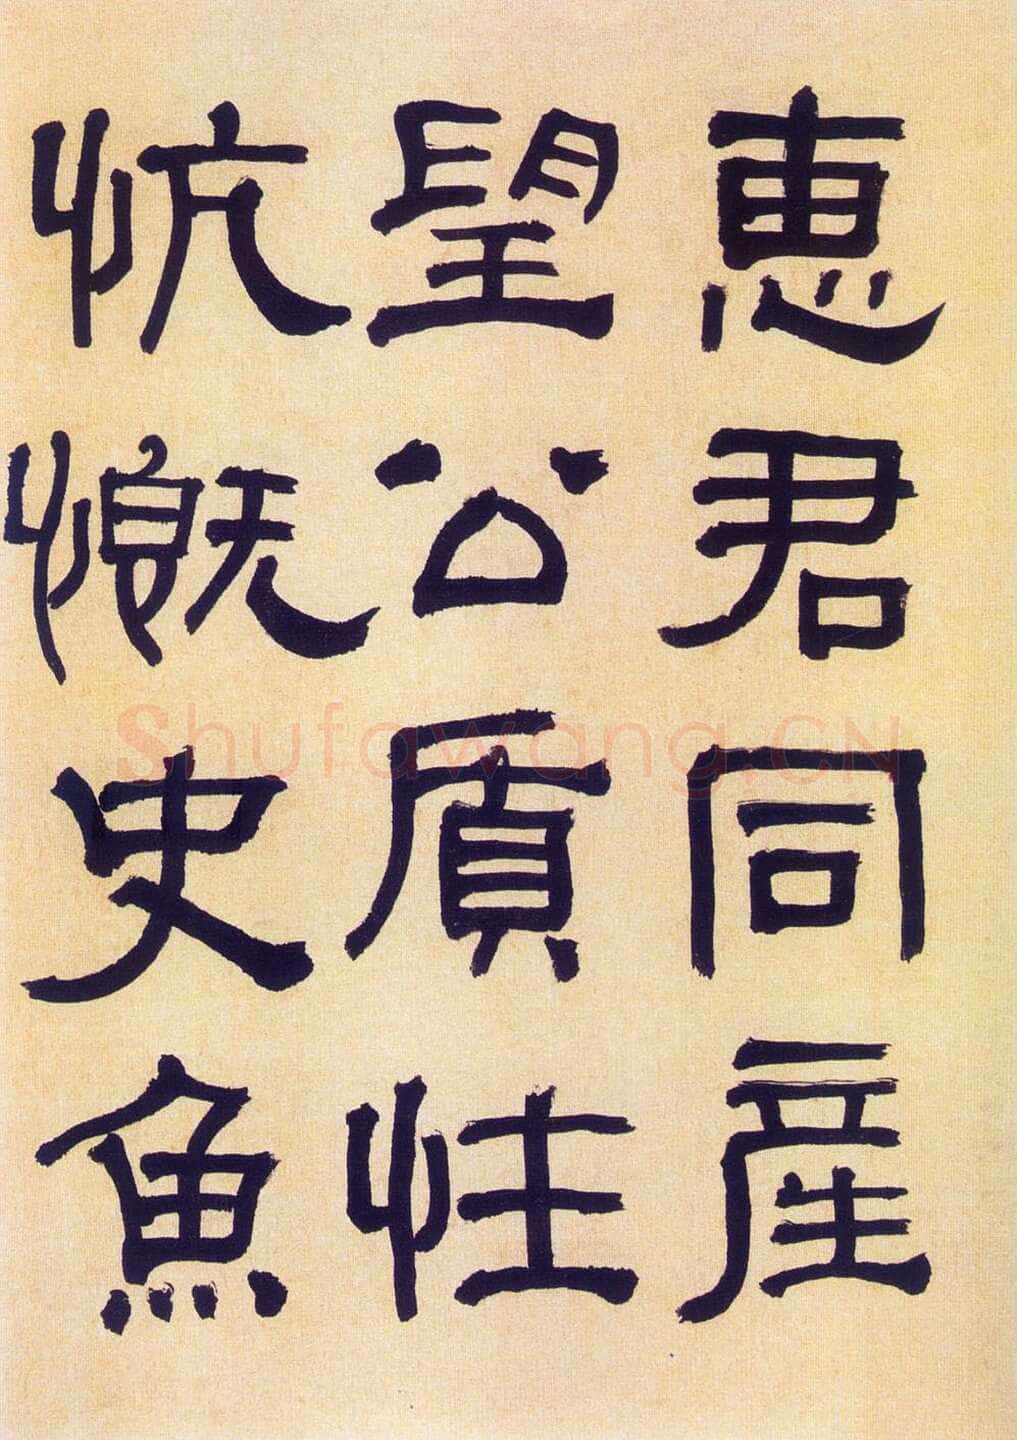 惠君同産
望公質性
忼慨史魚
Shufawang.CN